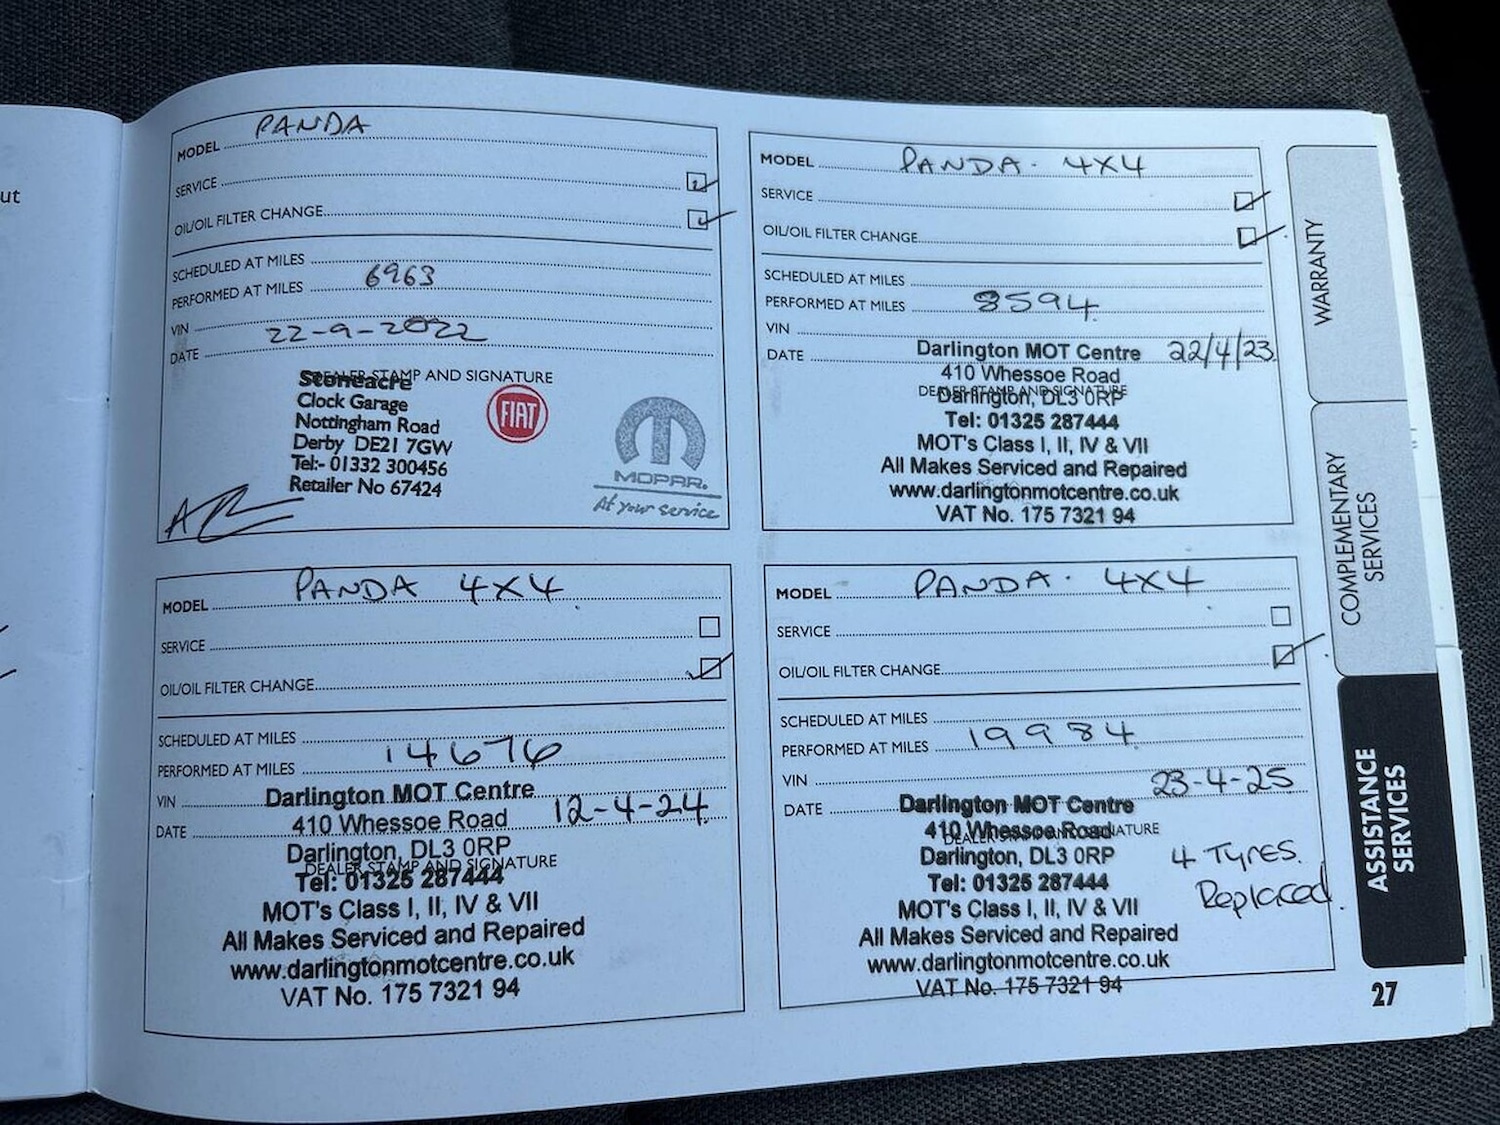 ut
MODEL PANDA
SERVICE
OIL/OIL FILTER CHANGE
SCHEDULED AT MILES
PERFORMED AT MILES 6963
VIN
DATE 22-9-2022
DEALER STAMP AND SIGNATURE
Stoneacre
Clock Garage
Nottingham Road
Derby DE21 7GW
Tel:- 01332 300456
Retailer No 67424
FIAT
MOPAR.
At your service
MODEL PANDA. 4X4
SERVICE
OIL/OIL FILTER CHANGE
SCHEDULED AT MILES
PERFORMED AT MILES 8594
VIN
DATE 22/4/23
Darlington MOT Centre
410 Whessoe Road
DEALER STAMP AND SIGNATURE
Darlington, DL3 0RP
Tel: 01325 287444
MOT's Class I, II, IV & VII
All Makes Serviced and Repaired
www.darlingtonmotcentre.co.uk
VAT No. 175 7321 94
MODEL PANDA 4X4
SERVICE
OIL/OIL FILTER CHANGE
SCHEDULED AT MILES
PERFORMED AT MILES 14676
VIN
DATE 12-4-24
Darlington MOT Centre
410 Whessoe Road
Darlington, DL3 0RP
DEALER STAMP AND SIGNATURE
Tel: 01325 287444
MOT's Class I, II, IV & VII
All Makes Serviced and Repaired
www.darlingtonmotcentre.co.uk
VAT No. 175 7321 94
MODEL PANDA. 4X4
SERVICE
OIL/OIL FILTER CHANGE
SCHEDULED AT MILES
PERFORMED AT MILES 19984
VIN
DATE 23-4-25
Darlington MOT Centre
410 Whessoe Road
DEALER STAMP AND SIGNATURE
Darlington, DL3 0RP
Tel: 01325 287444
MOT's Class I, II, IV & VII
All Makes Serviced and Repaired
www.darlingtonmotcentre.co.uk
VAT No. 175 7321 94
4 Tyres.
Replaced.
WARRANTY
COMPLEMENTARY
SERVICES
ASSISTANCE
SERVICES
27